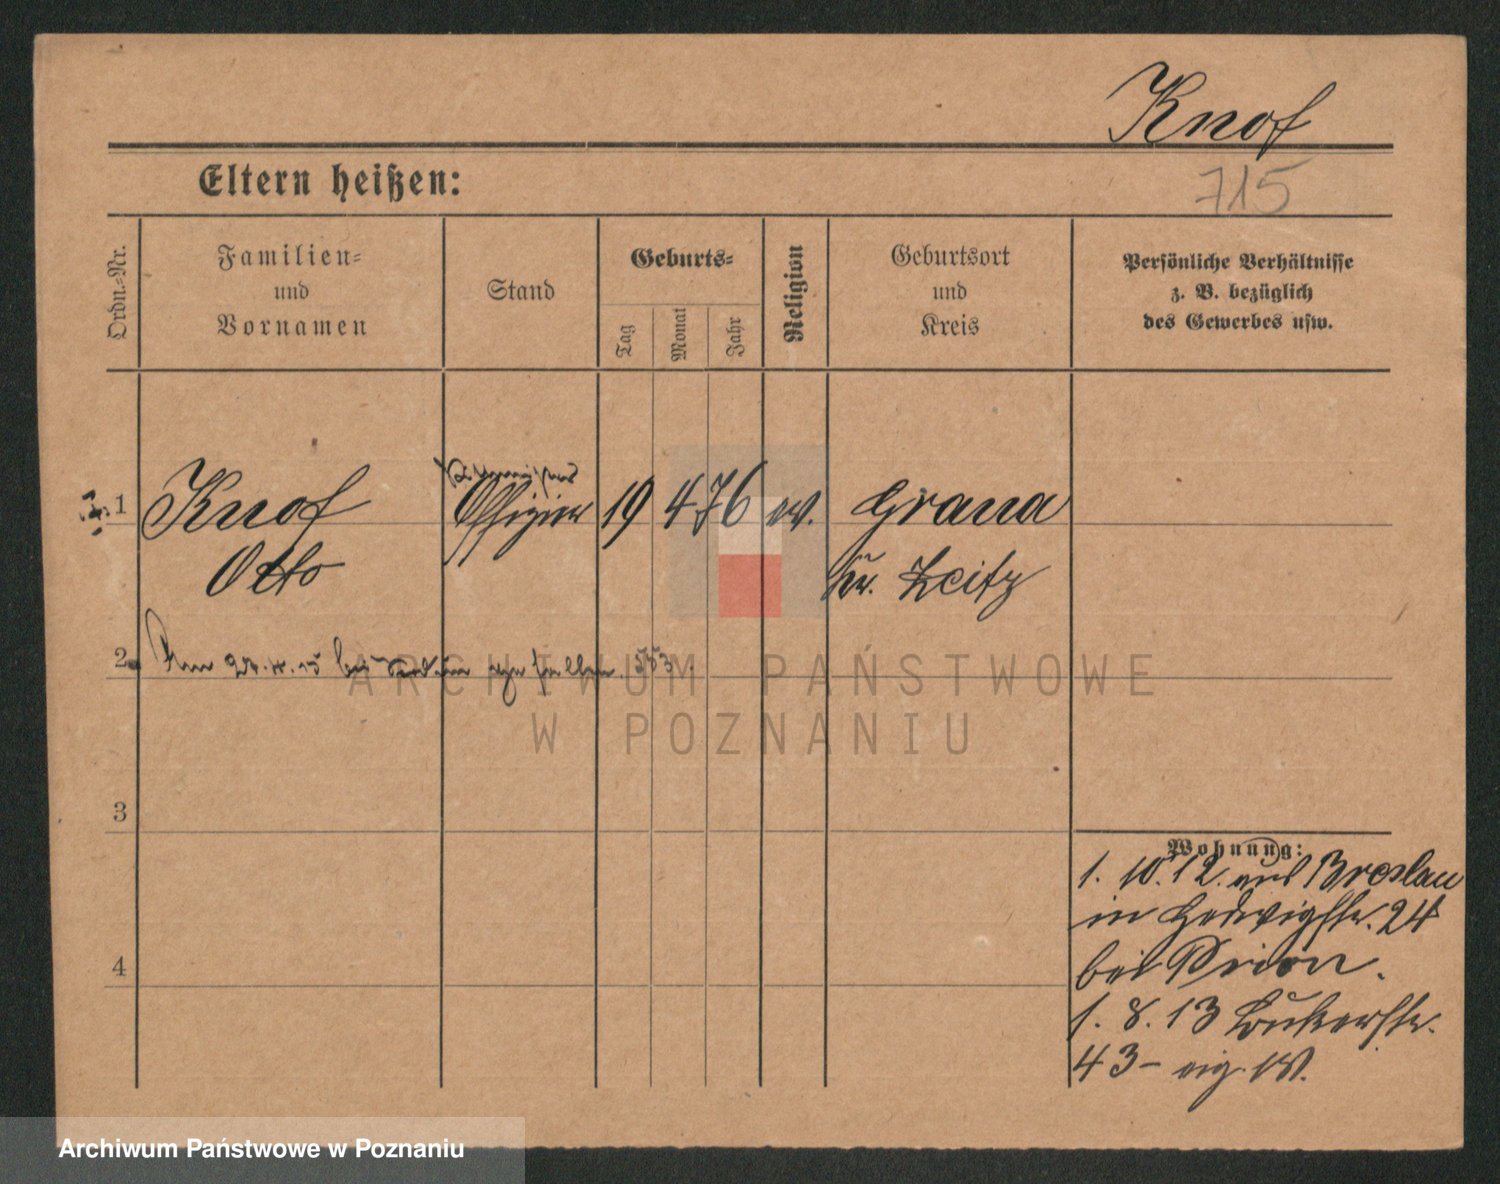 Knof
Eltern heißen:
715
Ordn.-Nr.
Familien-
und
Vornamen
Stand
Geburts-
Tag
Monat
Jahr
Religion
Geburtsort
und
Kreis
Persönliche Verhältnisse
z. B. bezüglich
des Gewerbes usw.
1
Knof
Offizier
19
4
76
ev.
Grana
Otto
Kr. Zeitz
2
Am
gefallen.
ARCHIWUM PAŃSTWOWE
W POZNANIU
3
Wohnung:
1. 10. 12. aus Breslau
in Hedwigstr. 24
bei Prion.
4
1. 8. 13
43 - eig. W.
Archiwum Państwowe w Poznaniu